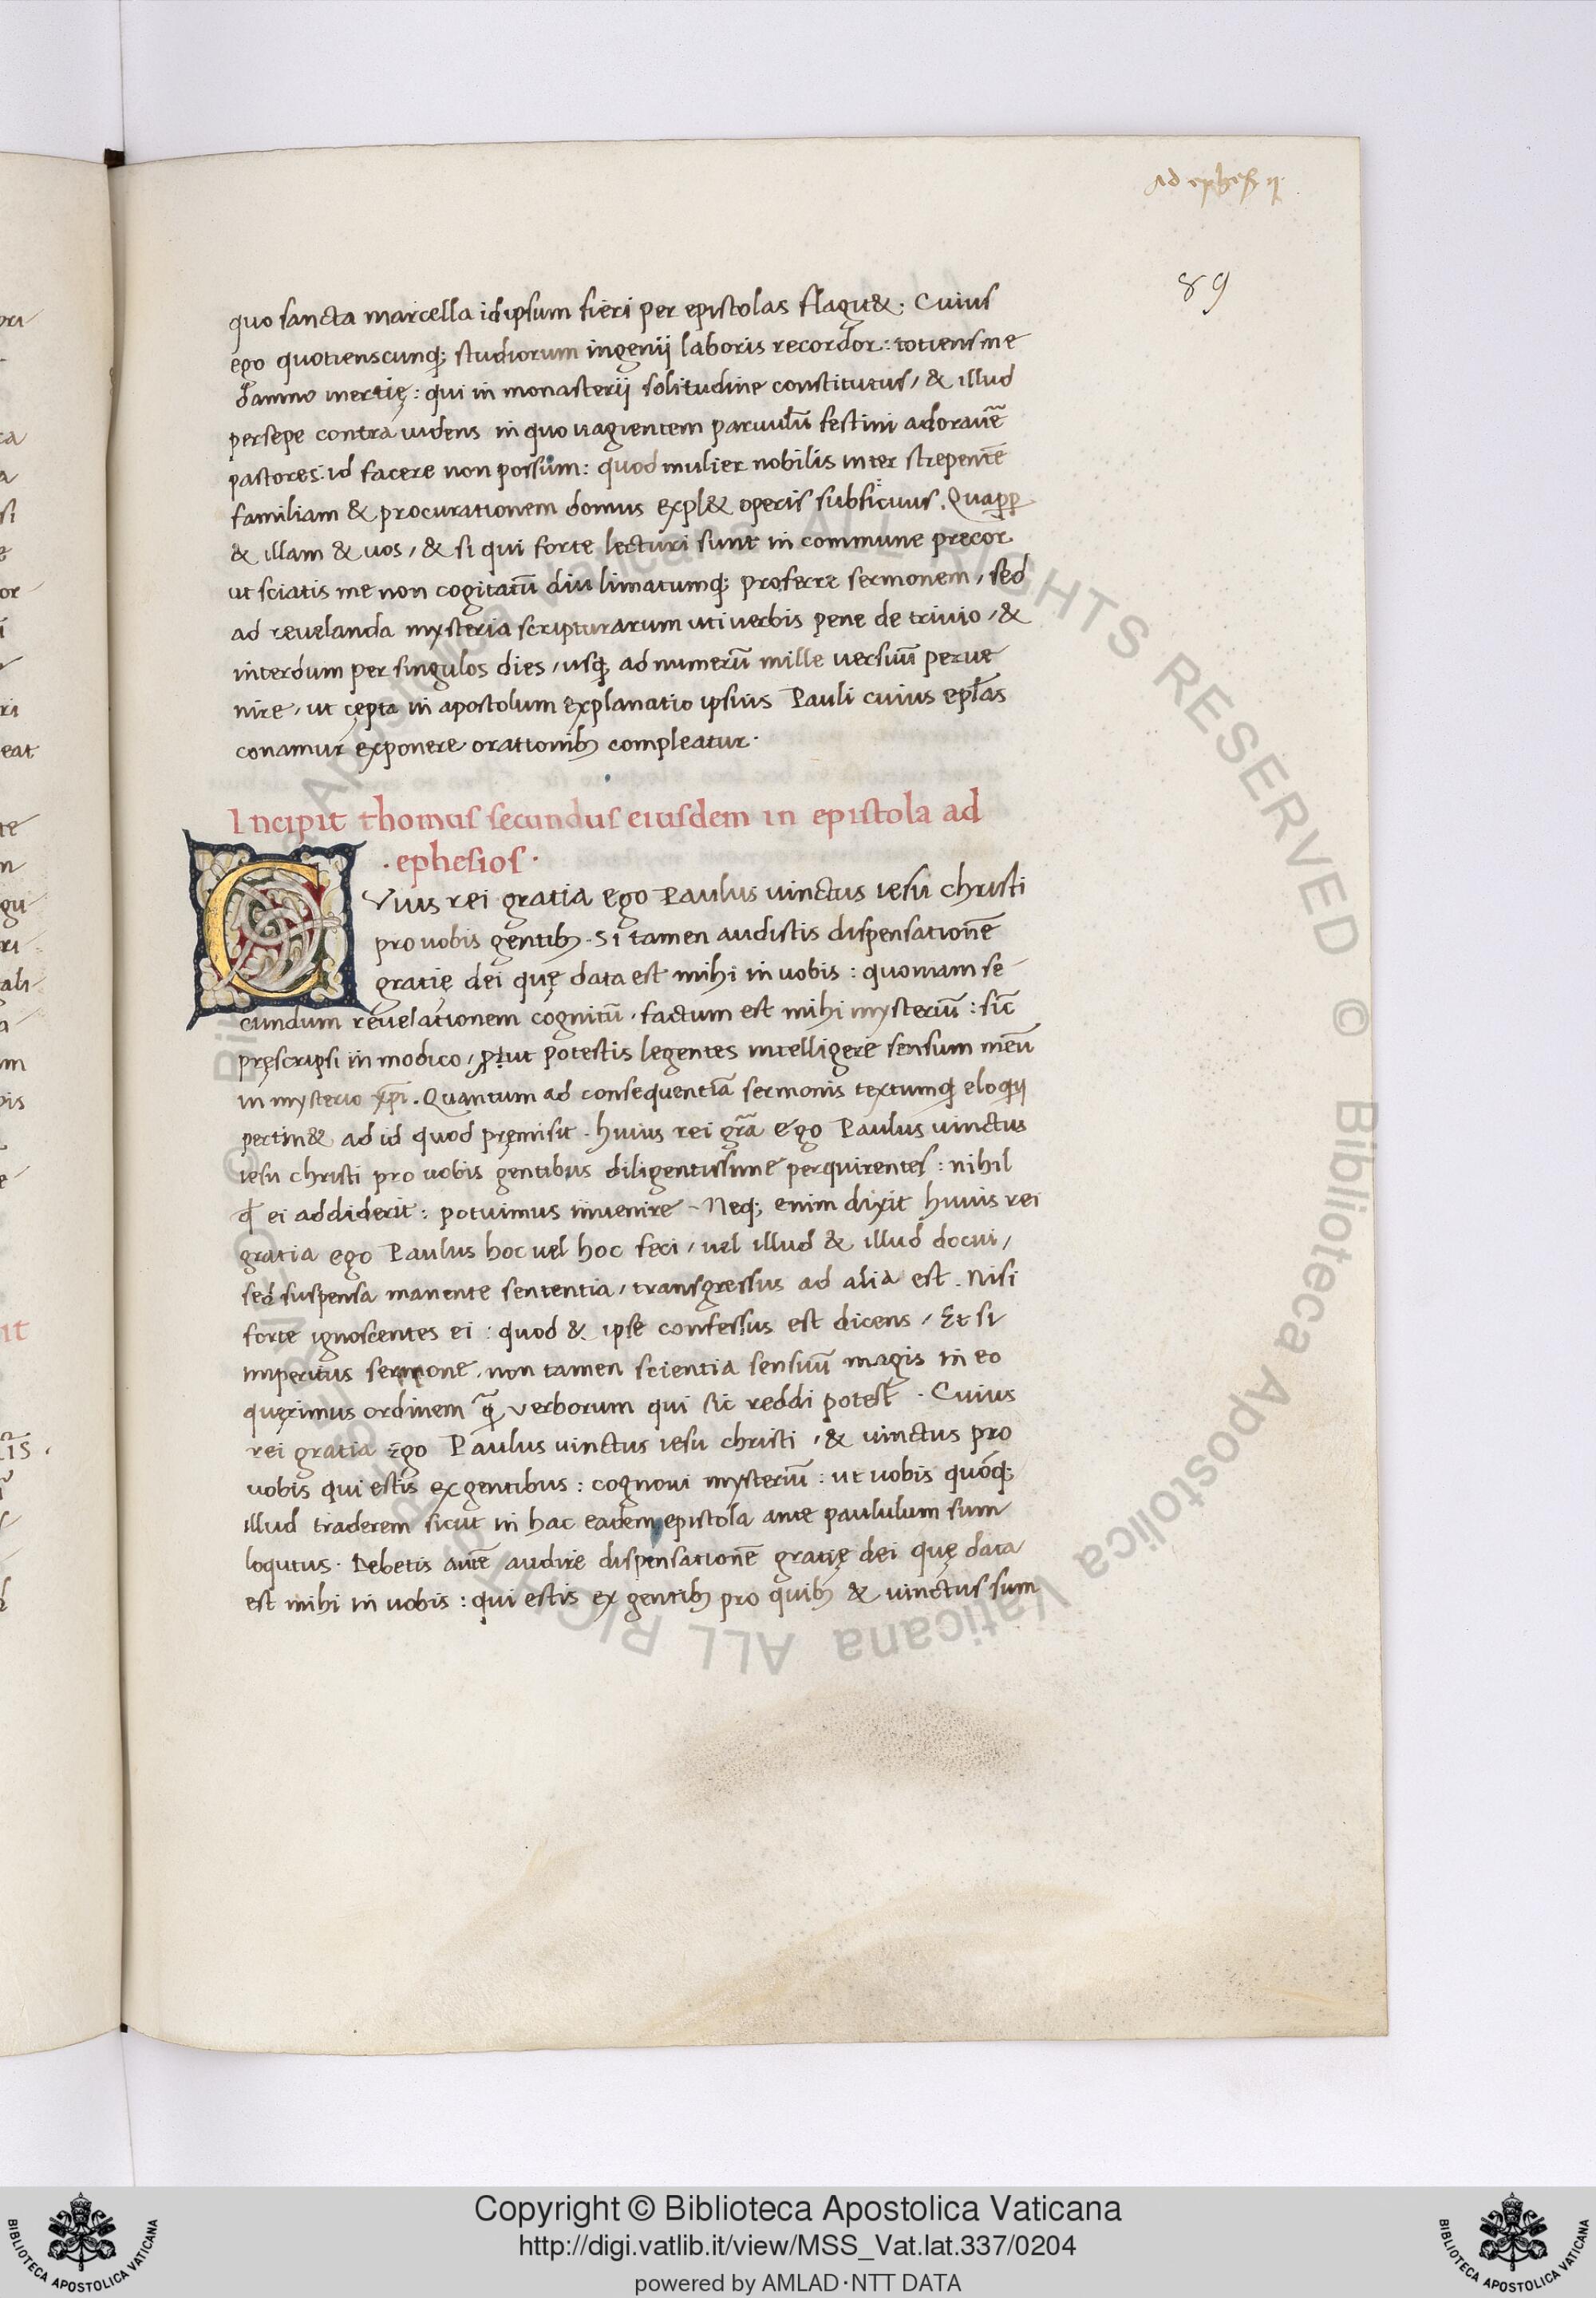 ad ephes ij.
89
quo sancta marcella id ipsum fieri per epistolas flagit&. Cuius
ego quotienscunq; studiorum ingenij laboris recordor: totiens me
damno inertię: qui in monasterij solitudine constitutus, & illud
persepe contra uidens in quo uagientem paruulū festini adorauē̃
pastores: id facere non possum: quod mulier nobilis inter strepentē
familiam & procurationem domus expl& operis subsiciuus. Quapp̱
& illam & uos, & si qui forte lecturi sunt in commune precor
ut sciatis me non cogitatū diu limatumq; proferre sermonem, sed
ad reuelanda mysteria scripturarum uti uerbis pene de triuio, &
interdum per singulos dies, usq; ad numerū mille uersuū perue
nire, ut cępta in apostolum explanatio ipsius Pauli cuius epl̃as
conamur exponere orationib; compleatur.
Incipit thomus secundus eiusdem in epistola ad
. ephesios .
CVius rei gratia ego Paulus uinctus iesu christi
pro uobis gentib;. Si tamen audistis dispensationē
gratię dei quę data est mihi in uobis: quoniam se
cundum reuelationem cognitū. factum est mihi mysteriū: sic̃
pręscripsi in modico, ꝓut potestis legentes intelligere sensum meū
in mysterio xp̄i. Quantum ad consequentiā sermonis textumq; eloquij
pertin& ad id quod pręmisit. huius rei gr̃a ego Paulus uinctus
iesu christi pro uobis gentibus diligentissime perquirentes: nihil
qđ ei addiderit: potuimus inuenire - Neq; enim dixit huius rei
gratia ego Paulus hoc uel hoc feci, uel illud & illud docui,
sed suspensa manente sententia, transgressus ad alia est. Nisi
forte ignoscentes ei: quod & ipse confessus est dicens, Et si
imperitus sermone. non tamen scientia sensuū magis in eo
quęrimus ordinem q̃ uerborum qui sic reddi potest. Cuius
rei gratia Ego Paulus uinctus iesu christi, & uinctus pro
uobis qui estis ex gentibus: cognoui mysteriū: ut uobis quoq;
illud traderem sicut in hac eadem epistola ante paululum sum
loqutus. Debetis autē audire dispensationē gratię dei quę data
est mihi in uobis: qui estis ex gentib; pro quib; & uinctus sum
Copyright © Biblioteca Apostolica Vaticana
http://digi.vatlib.it/view/MSS_Vat.lat.337/0204
powered by AMLAD·NTT DATA